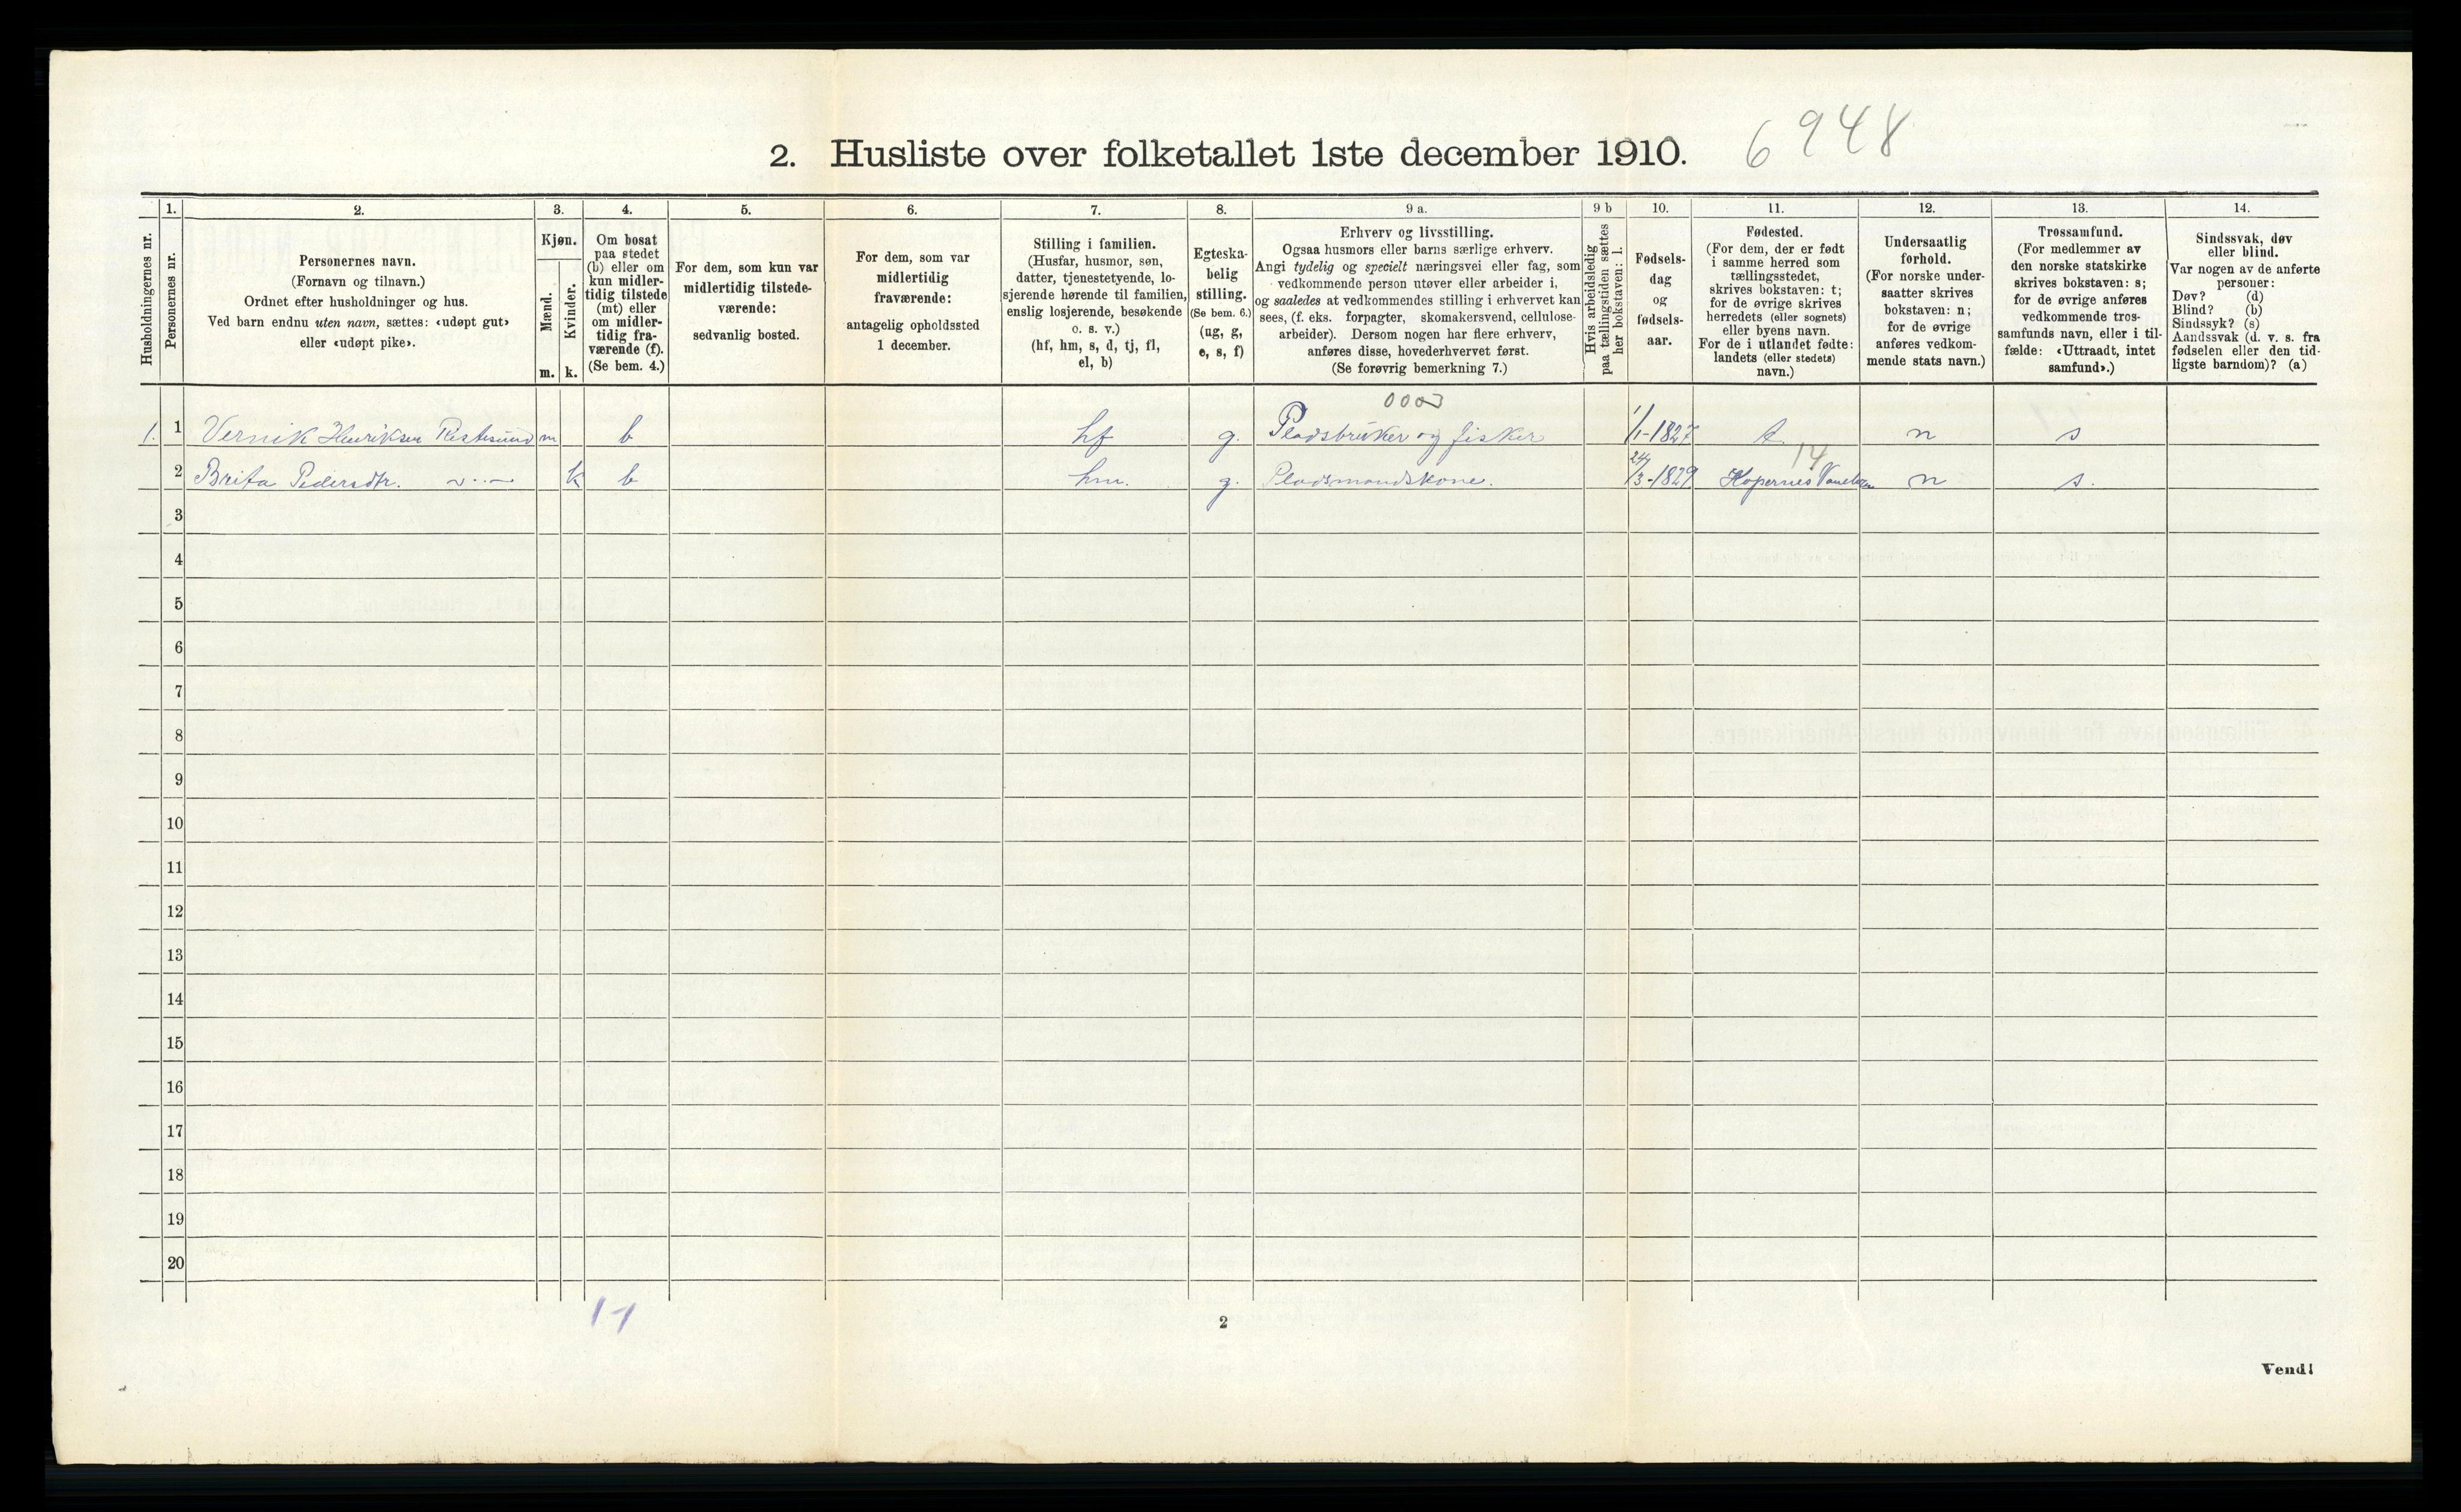 2. Husliste over folketallet 1ste december 1910. 6948
Husholdningernes nr.
1.
Personernes nr.
2.
Personernes navn.
(Fornavn og tilnavn.)
Ordnet efter husholdninger og hus.
Ved barn endnu uten navn, sættes: «udøpt gut»
eller «udøpt pike».
3.
Kjøn.
Mænd.
Kvinder.
m. k.
4.
Om bosat
paa stedet
(b) eller om
kun midler-
tidig tilstede
(mt) eller
om midler-
tidig fra-
værende (f).
(Se bem. 4.)
5.
For dem, som kun var
midlertidig tilstede-
værende:
sedvanlig bosted.
6.
For dem, som var
midlertidig
fraværende:
antagelig opholdssted
1 december.
7.
Stilling i familien.
(Husfar, husmor, søn,
datter, tjenestetyende, lo-
sjerende hørende til familien,
enslig losjerende, besøkende
o. s. v.)
(hf, hm, s, d, tj, fl,
el, b)
8.
Egteska-
belig
stilling.
(Se bem. 6.)
(ug, g,
e, s, f)
9 a.
Erhverv og livsstilling.
Ogsaa husmors eller barns særlige erhverv.
Angi tydelig og specielt næringsvei eller fag, som
vedkommende person utøver eller arbeider i,
og saaledes at vedkommendes stilling i erhvervet kan
sees, (f. eks. forpagter, skomakersvend, cellulose-
arbeider). Dersom nogen har flere erhverv,
anføres disse, hovederhvervet først.
(Se forøvrig bemerkning 7.)
9 b
Hvis arbeidsledig
paa tællingstiden sættes
her bokstaven: l.
10.
Fødsels-
dag
og
fødsels-
aar.
11.
Fødested.
(For dem, der er født
i samme herred som
tællingsstedet,
skrives bokstaven: t;
for de øvrige skrives
herredets (eller sognets)
eller byens navn.
For de i utlandet fødte:
landets (eller stedets)
navn.)
12.
Undersaatlig
forhold.
(For norske under-
saatter skrives
bokstaven: n;
for de øvrige
anføres vedkom-
mende stats navn.)
13.
Trossamfund.
(For medlemmer av
den norske statskirke
skrives bokstaven: s;
for de øvrige anføres
vedkommende tros-
samfunds navn, eller i til-
fælde: «Uttraadt, intet
samfund».)
14.
Sindssvak, døv
eller blind.
Var nogen av de anførte
personer:
Døv? (d)
Blind? (b)
Sindssyk? (s)
Aandssvak (d. v. s. fra
fødselen eller den tid-
ligste barndom)? (a)
1. 1 Vernik Henriksen m b hf g. Pladsbruker og fisker 1/1-1827 t. n s
14
2 Brita Pedersdtr. k b hm. g. Pladsmandskone. 24/3-1829 n s.
3
4
5
6
7
8
9
10
11
12
13
14
15
16
17
18
19
20
1-1
2
Vend!